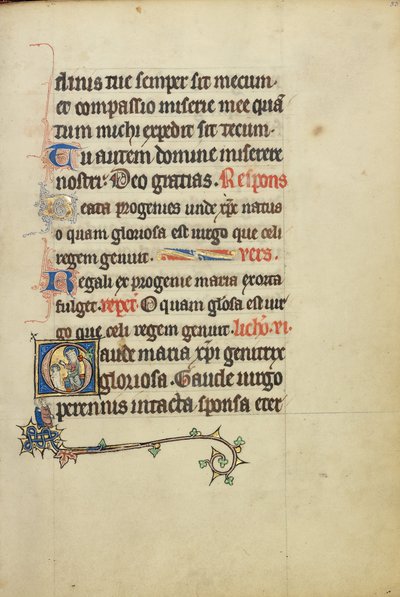 dinis tue semper sit mecum
et compassio miserie mee quā
tum michi expedit sit tecum.
Tu autem domine miserere
nostri. Deo gratias. Respons
Beata progenies unde xp̄c natus
o quam gloriosa est uirgo que celi
regem genuit. vers.
Regali ex progenie maria exorta
fulget. repet. O quam glosa est uir
go que celi regem genuit. licho. vi.
Gaude maria xp̄i genitrix
gloriosa. Gaude uirgo
perennius intacta sponsa eter